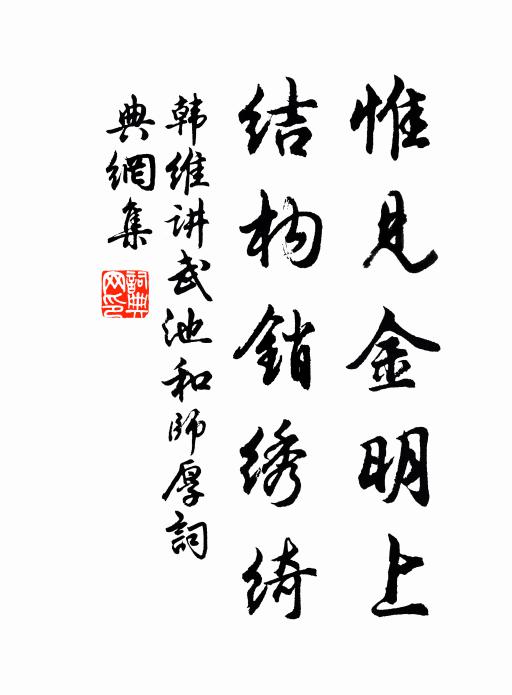 惟見金明上
结构銷绣绮
韩维讲武池和師厚詞
典網集
詞典網印